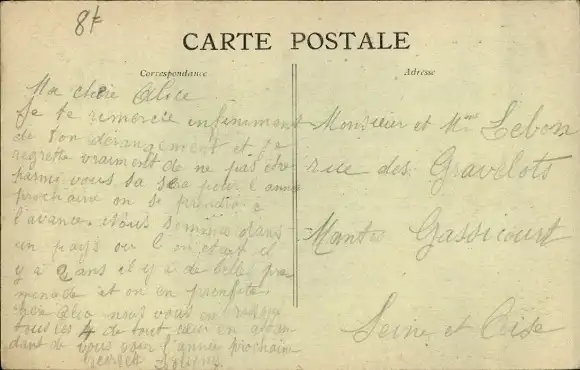 8f
CARTE POSTALE
Correspondance
Adresse
Ma chère Alice
Je te remercie infiniment
de ton dérangement et je
regrette vraiment de ne pas être
parmi vous sa sera pour l'année
prochaine on se prendra à
l'avance. Nous sommes dans
un pays ou l'on était il
y a 2 ans il y a de belle pro
menade et on en profite.
chère Alice nous vous embrassons
tous les 4 de tout cœur en atten
dant de vous voir l'année prochaine
Georges
Monsieur et Mme Lebon
rue des Gravelots
Mantes Gassicourt
Seine et Oise